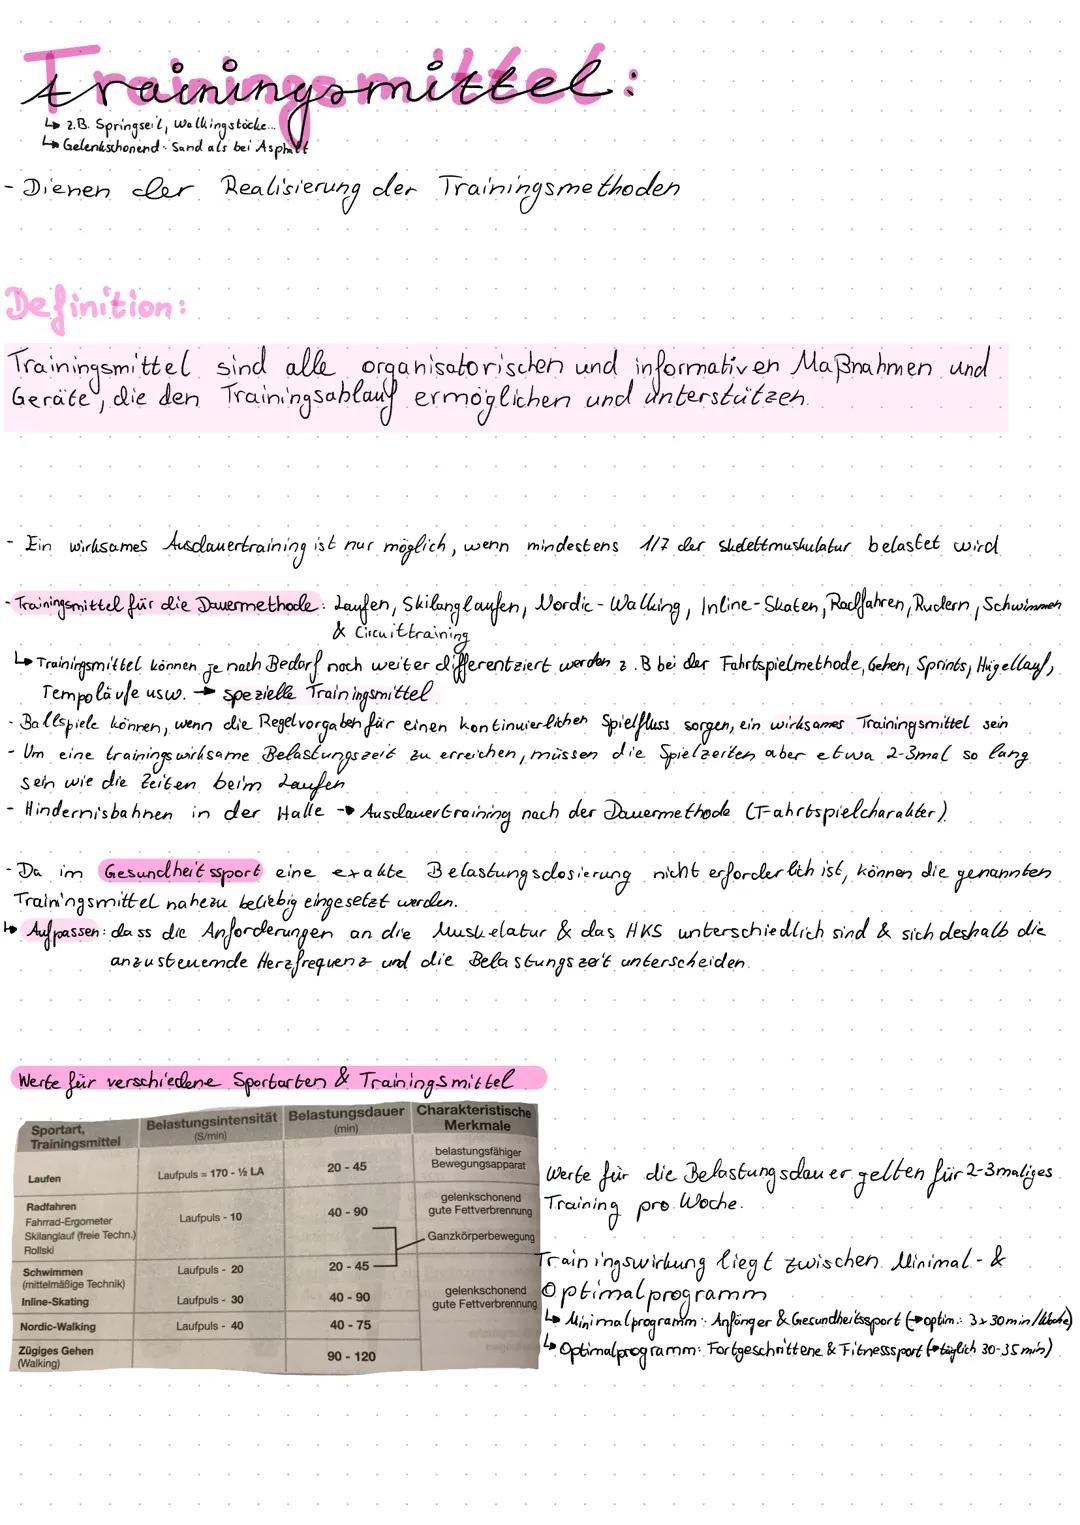 Trainingsmittel:
↳ z.B. Springseil, Walkingstöcke...
↳ Gelenkschonend: Sand als bei Asphalt
- Dienen der Realisierung der Trainingsmethoden
Definition:
Trainingsmittel sind alle organisatorischen und informativen Maßnahmen und
Geräte, die den Trainingsablauf ermöglichen und unterstützen.
- Ein wirksames Ausdauertraining ist nur möglich, wenn mindestens 1/7 der Skelettmuskulatur belastet wird
- Trainingsmittel für die Dauermethode: Laufen, Skilanglaufen, Nordic-Walking, Inline-Skaten, Radfahren, Rudern, Schwimmen
& Circuittraining
↳ Trainingsmittel können je nach Bedarf noch weiter differentziert werden z.B bei der Fahrtspielmethode, Gehen, Sprints, Hügellauf,
Tempoläufe usw. → spezielle Trainingsmittel
- Ballspiele können, wenn die Regelvorgaben für einen kontinuierlichen Spielfluss sorgen, ein wirksames Trainingsmittel sein
- Um eine trainingswirksame Belastungszeit zu erreichen, müssen die Spielzeiten aber etwa 2-3mal so lang
sein wie die Zeiten beim Laufen
- Hindernisbahnen in der Halle → Ausdauertraining nach der Dauermethode (Fahrtspielcharakter)
- Da im Gesundheitssport eine exakte Belastungsdosierung nicht erforderlich ist, können die genannten
Trainingsmittel nahezu beliebig eingesetzt werden.
↳ Aufpassen: dass die Anforderungen an die Muskelatur & das HKS unterschiedlich sind & sich deshalb die
anzusteuernde Herzfrequenz und die Belastungszeit unterscheiden.
Werte für verschiedene Sportarten & Trainingsmittel
Sportart, Trainingsmittel Belastungsintensität (S/min) Belastungsdauer (min) Charakteristische Merkmale
Laufen Laufpuls = 170 - ½ LA 20 - 45 belastungsfähiger Bewegungsapparat
Radfahren Laufpuls - 10 40 - 90 gelenkschonend gute Fettverbrennung
Fahrrad-Ergometer
Skilanglauf (freie Techn.) Ganzkörperbewegung
Rollski
Schwimmen Laufpuls - 20 20 - 45
(mittelmäßige Technik)
Inline-Skating Laufpuls - 30 40 - 90 gelenkschonend gute Fettverbrennung
Nordic-Walking Laufpuls - 40 40 - 75
Zügiges Gehen 90 - 120
(Walking)
Werte für die Belastungsdauer gelten für 2-3maliges
Training pro Woche.
Trainingswirkung liegt zwischen Minimal- &
Optimalprogramm
↳ Minimalprogramm: Anfänger & Gesundheitssport (→ optim.: 3x30min/Woche)
↳ Optimalprogramm: Fortgeschrittene & Fitnesssport (→ täglich 30-35 min)